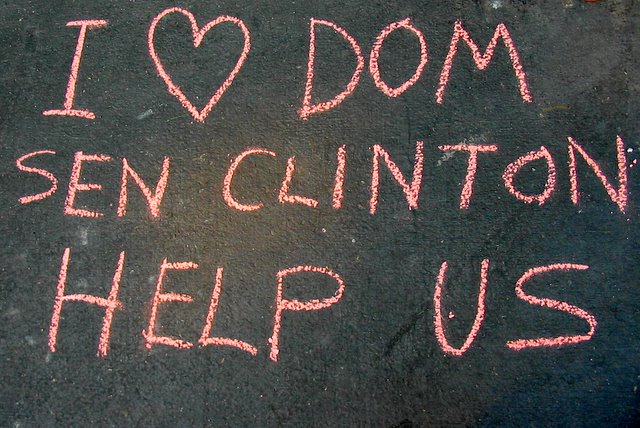 I ♥ DOM
SEN CLINTON
HELP US